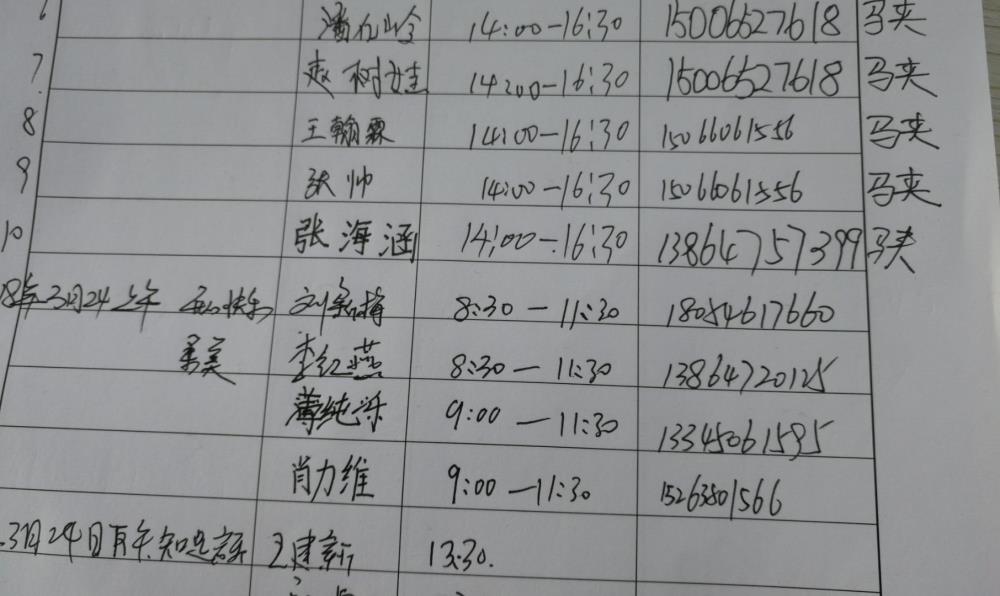 14:00-16:30 15006527618 马夹
7 赵树娃 14:00-16:30 15006527618 马夹
8 王翰霖 14:00-16:30 15066061556 马夹
9 张帅 14:00-16:30 15066061556 马夹
10 张海涵 14:00-16:30 13864757399 马夹
18年3月24上午 8:30-11:30 18054617660
李红燕 8:30-11:30 13864720125
薄纯泺 9:00-11:30 13345061595
肖力维 9:00-11:30 15263801566
3月24日 王建新 13:30.